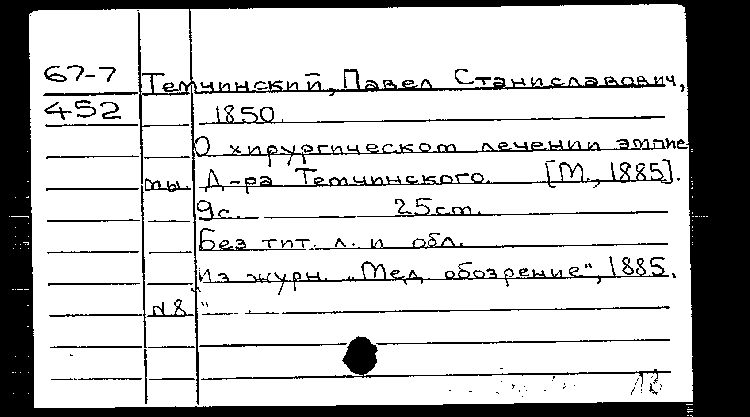 67-7 Темчинский, Павел Станиславович,
452 1850.
О хирургическом лечении эмпие
мы. Д-ра Темчинского. [М., 1885].
9с. 25см.
Без тит. л. и обл.
Из журн. „Мед. обозрение“, 1885.
№8 "